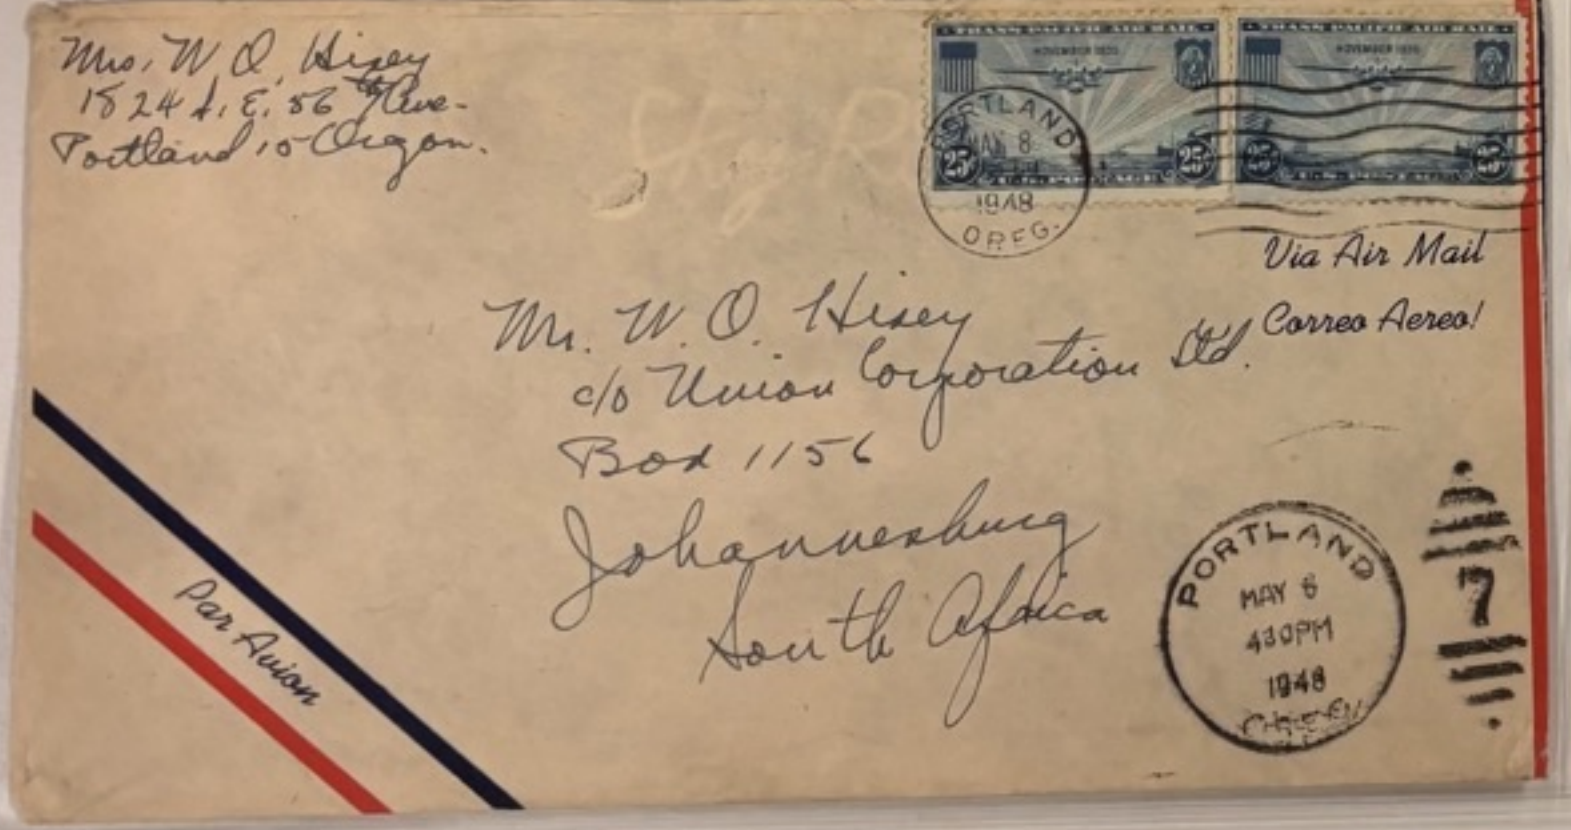 Mrs. W. O. Hisey
1824 S. E. 56th Ave-
Portland 15 Oregon.
TRANS-PACIFIC AIR MAIL
NOVEMBER 1935
25¢ 25¢
U.S. POSTAGE
TRANS-PACIFIC AIR MAIL
NOVEMBER 1935
25¢ 25¢
U.S. POSTAGE
PORTLAND
MAY 8
1948
OREG.
Via Air Mail
Correo Aereo!
Mr. W. O. Hisey
c/o Union Corporation Ltd.
Box 1156
Johannesburg
South Africa
Par Avion
PORTLAND
MAY 6
430PM
1948
7